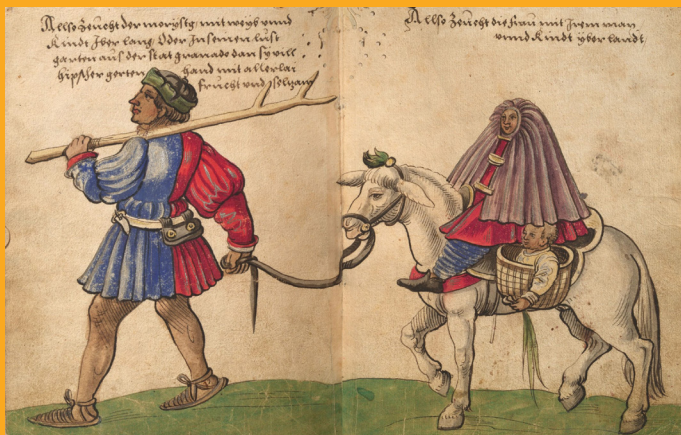 Allso Zeucht der morysch mit weyb vnnd
Kindt Jber lang Oder In seinen lust
garten aus der stat granado dan sy vill
hipscher gerten hand mit allerlai
frucht vnd selzam
Allso Zeucht die frau mit Jrem man
vnnd Kindt yber landt